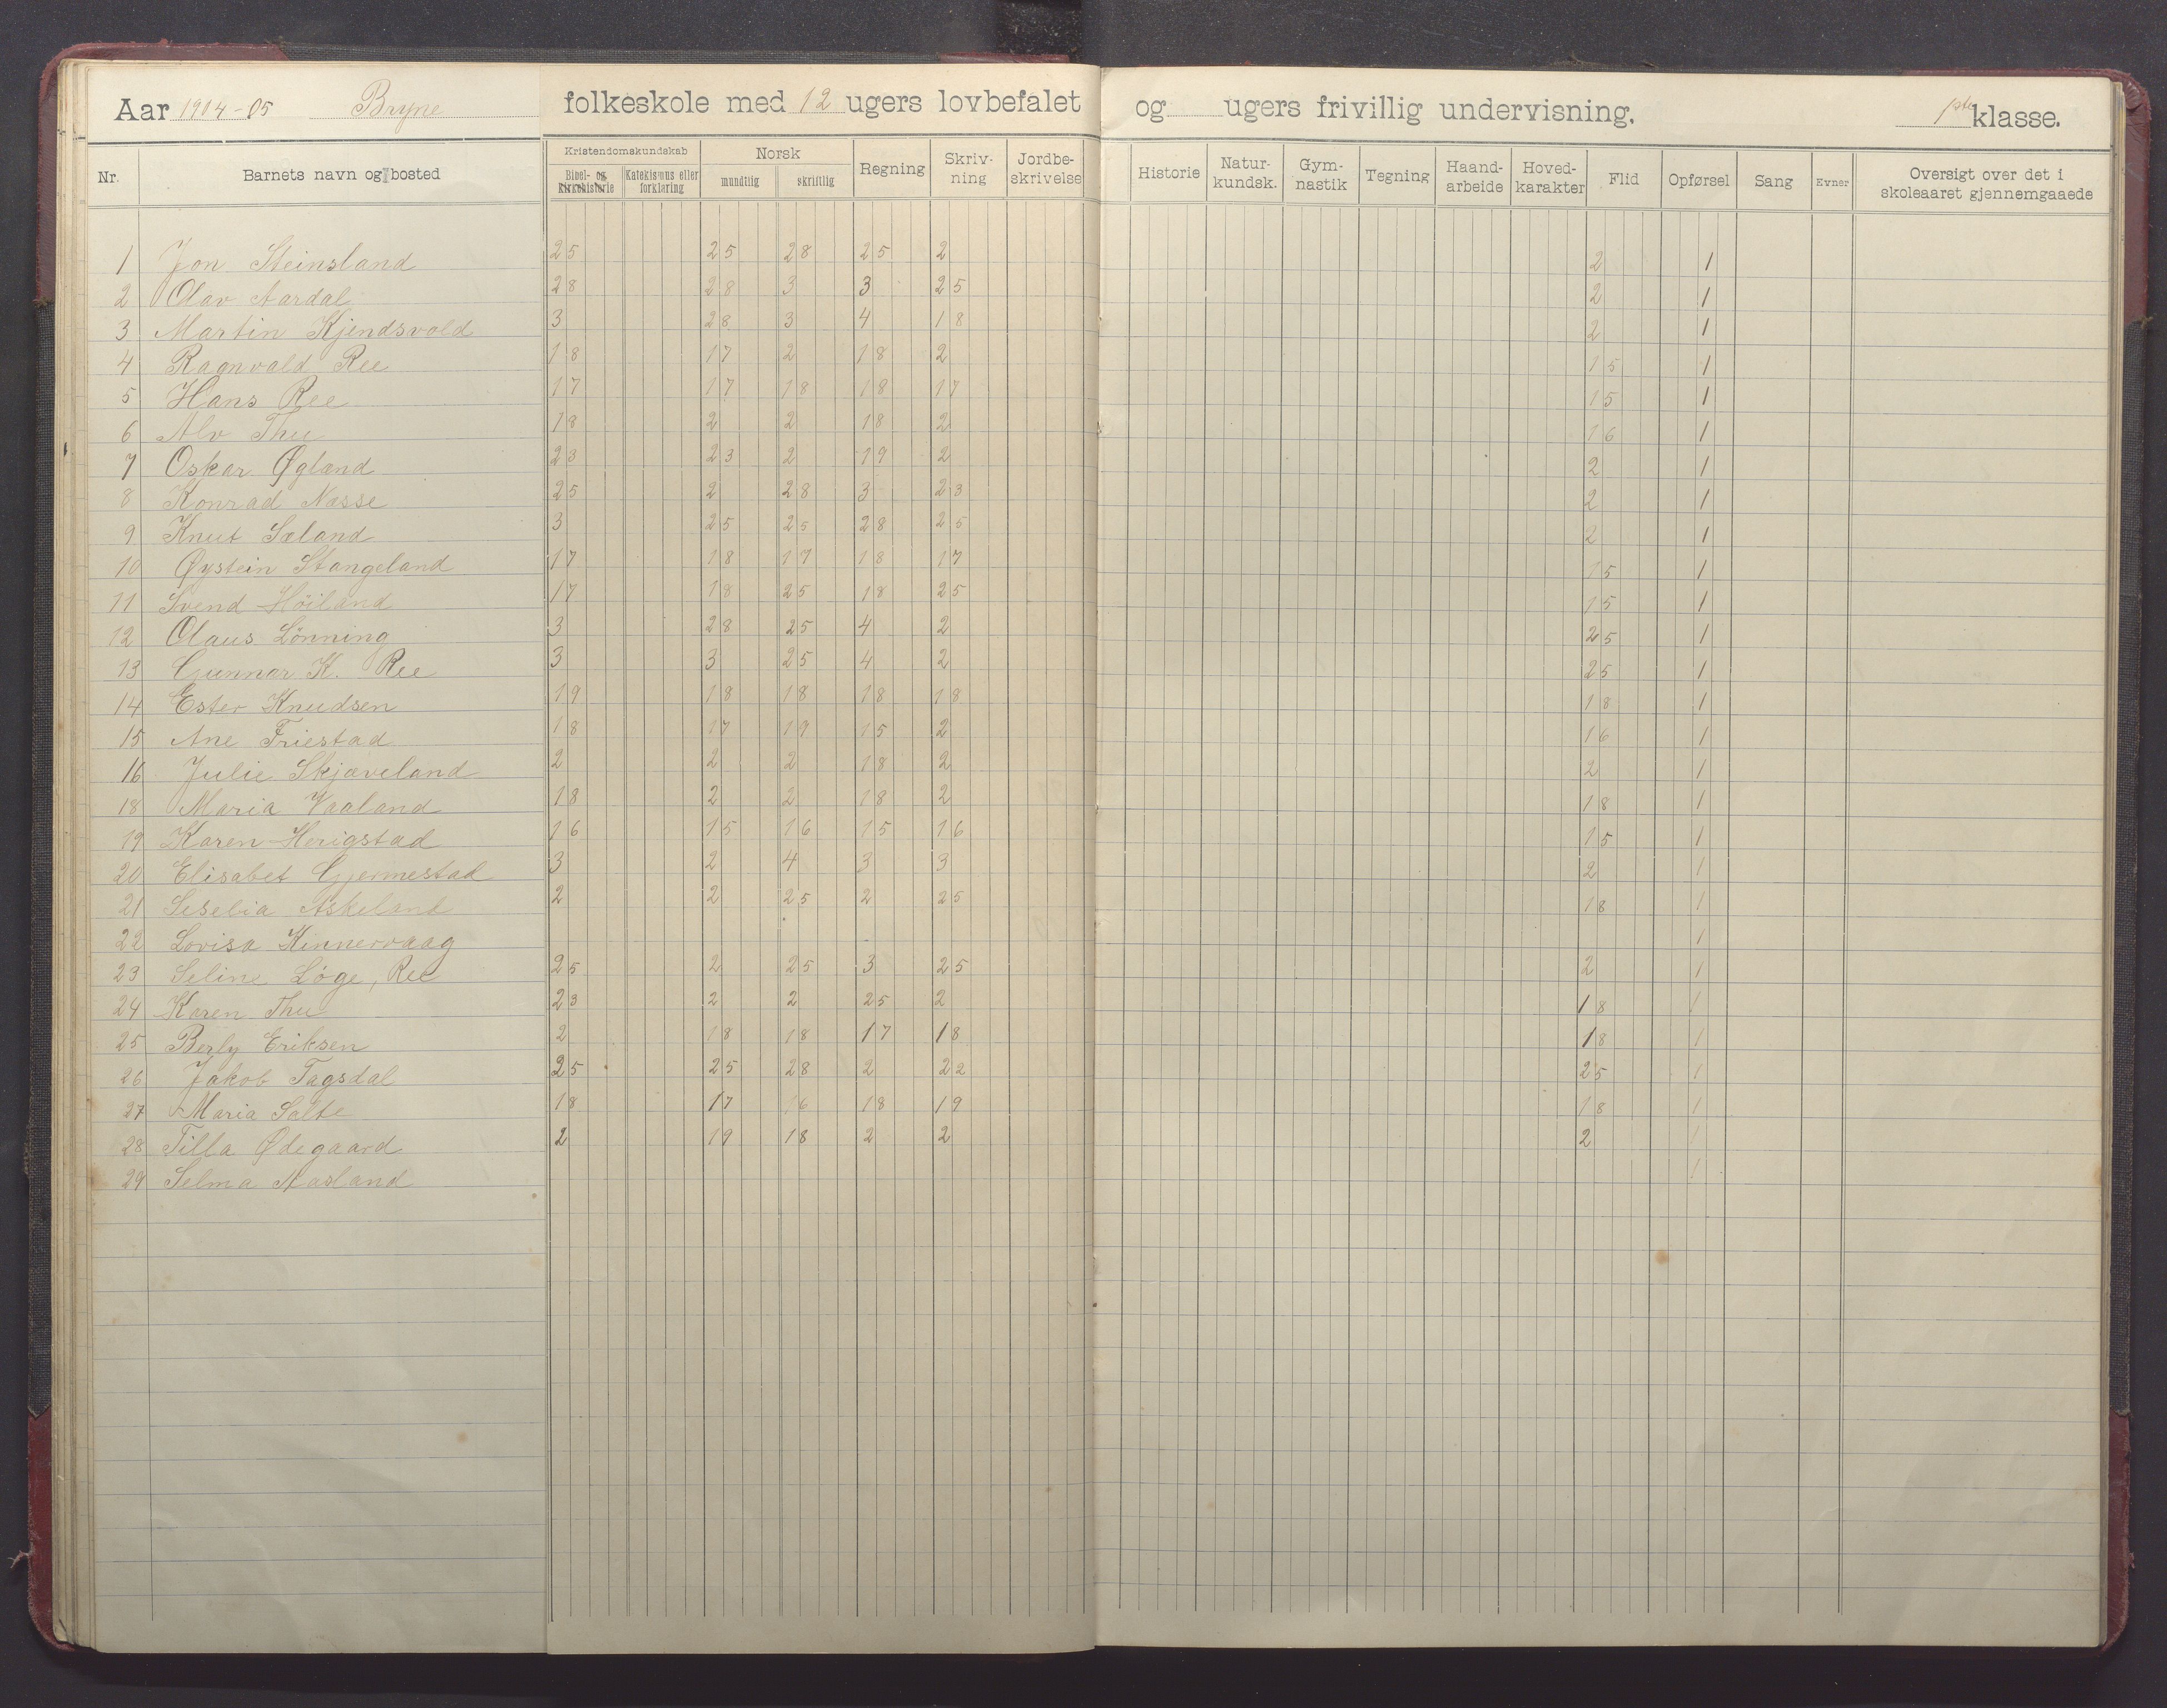 Aar 1904-05 Bryne folkeskole med 12 ugers lovbefalet og ugers frivillig undervisning. 1ste klasse.
Nr. Barnets navn og bosted Kristendomskundskab Bibel- og kirkehistorie Katekismus eller forklaring Norsk mundtlig skriftlig Regning Skriv-ning Jordbe-skrivelse Historie Natur-kundsk. Gym-nastik Tegning Haand-arbeide Hoved-karakter Flid Opførsel Sang Evner Oversigt over det i skoleaaret gjennemgaaede
1 Jon Steinsland 25 25 28 25 2 2 1
2 Olav Aardal 28 28 3 3 25 2 1
3 Martin Kjendsvold 3 28 3 4 18 2 1
4 Ragnvald Ree 18 17 2 18 2 15 1
5 Hans Ree 17 17 18 18 17 15 1
6 Alv Thu 18 2 2 18 2 16 1
7 Oskar Øgland 23 23 2 19 2 2 1
8 Konrad Nasse 25 2 28 3 23 2 1
9 Knut Sæland 3 25 25 28 25 2 1
10 Øystein Stangeland 17 18 17 18 17 15 1
11 Svend Höiland 17 18 25 18 25 15 1
12 Olaus Lönning 3 28 25 4 2 25 1
13 Gunnar K. Ree 3 3 25 4 2 25 1
14 Ester Knudsen 19 18 18 18 18 18 1
15 Ane Friestad 18 17 19 15 2 16 1
16 Julie Skjæveland 2 2 2 18 2 2 1
18 Maria Vaaland 18 2 2 18 2 18 1
19 Karen Herigstad 16 15 16 15 16 15 1
20 Elisabet Gjermestad 3 2 4 3 3 2 1
21 Seselia Askeland 2 2 25 2 25 18 1
22 Lovisa Kinnervaag 1
23 Seline Löge, Ree 25 2 25 3 25 2 1
24 Karen Thu 23 2 2 25 2 18 1
25 Berly Eriksen 2 18 18 17 18 18 1
26 Jakob Tagsdal 25 25 28 2 22 25 1
27 Maria Salte 18 17 16 18 19 18 1
28 Tilla Ødegaard 2 19 18 2 2 2 1
29 Selma Aasland 1